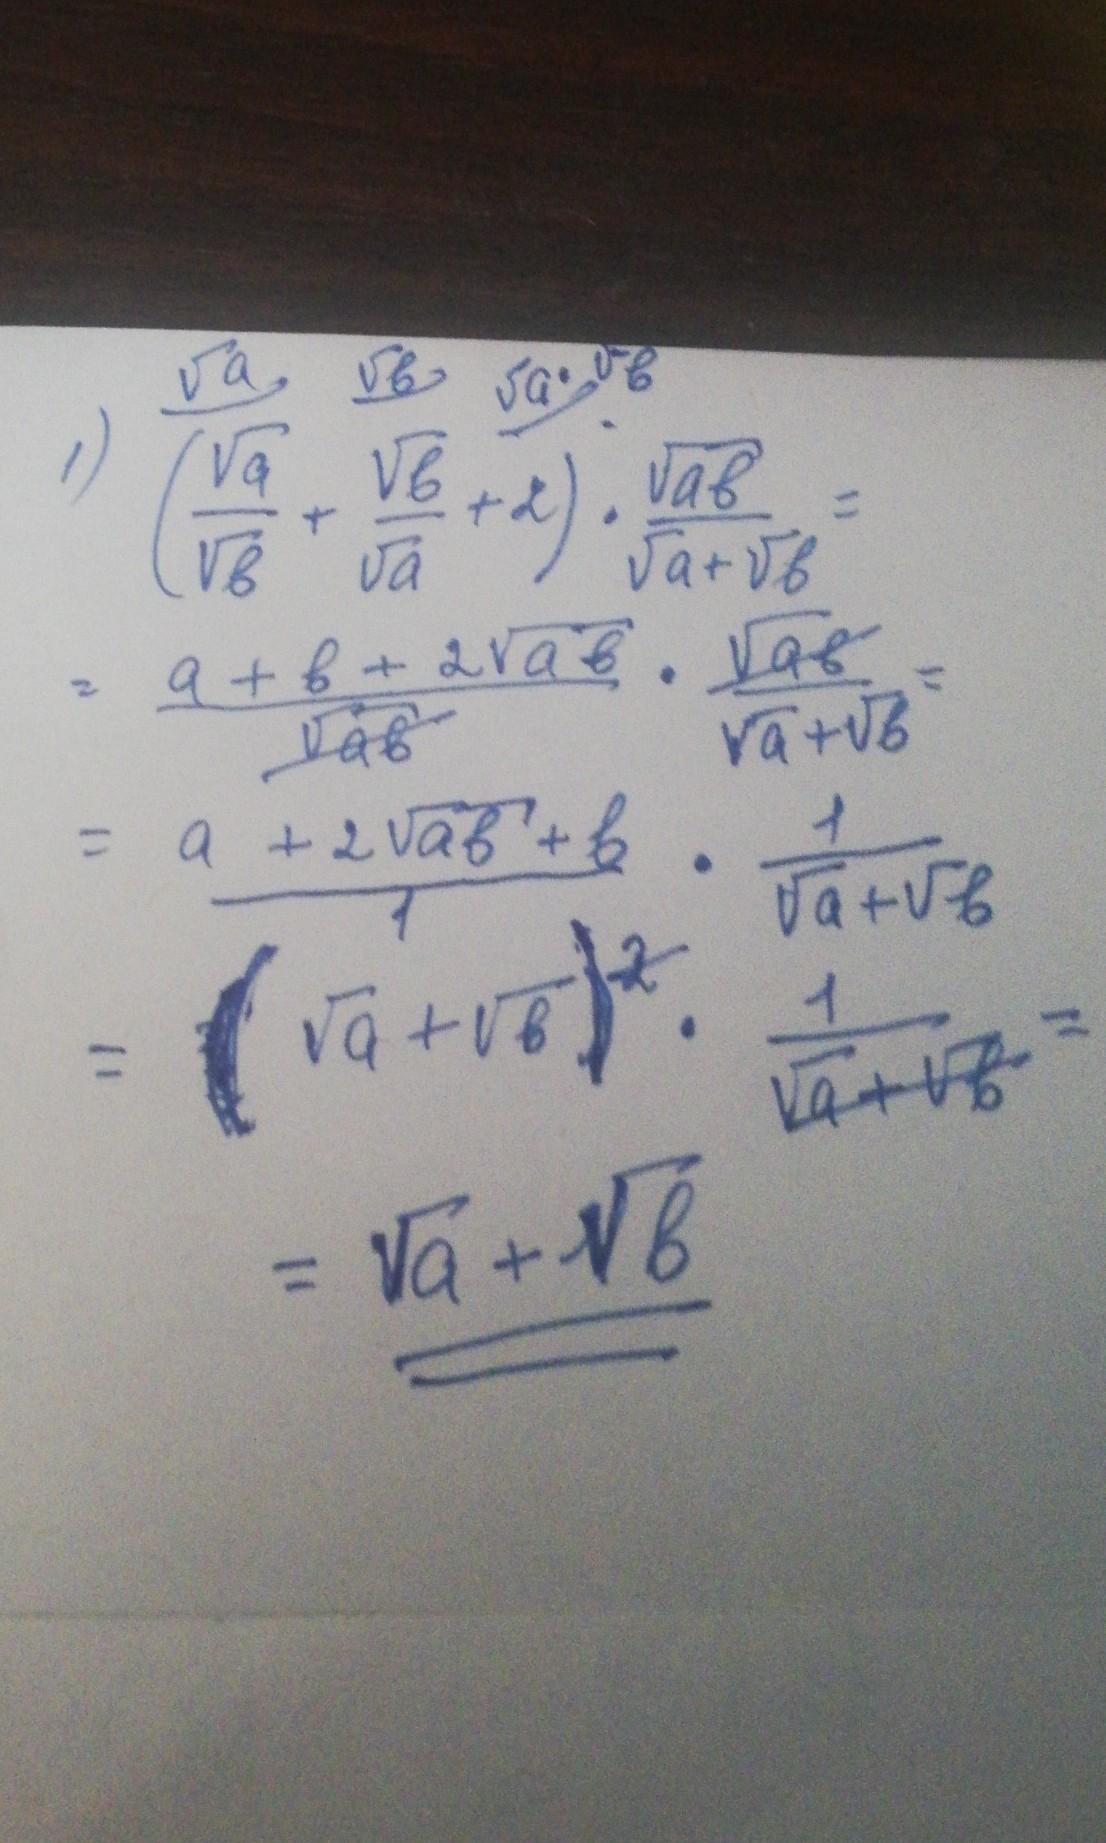 √a √b √a·√b
1) (√a/√b + √b/√a + 2) · √ab/(√a+√b) =
= (a + b + 2√ab)/√ab · √ab/(√a+√b) =
= (a + 2√ab + b)/1 · 1/(√a+√b)
= (√a + √b)² · 1/(√a+√b) =
= √a + √b